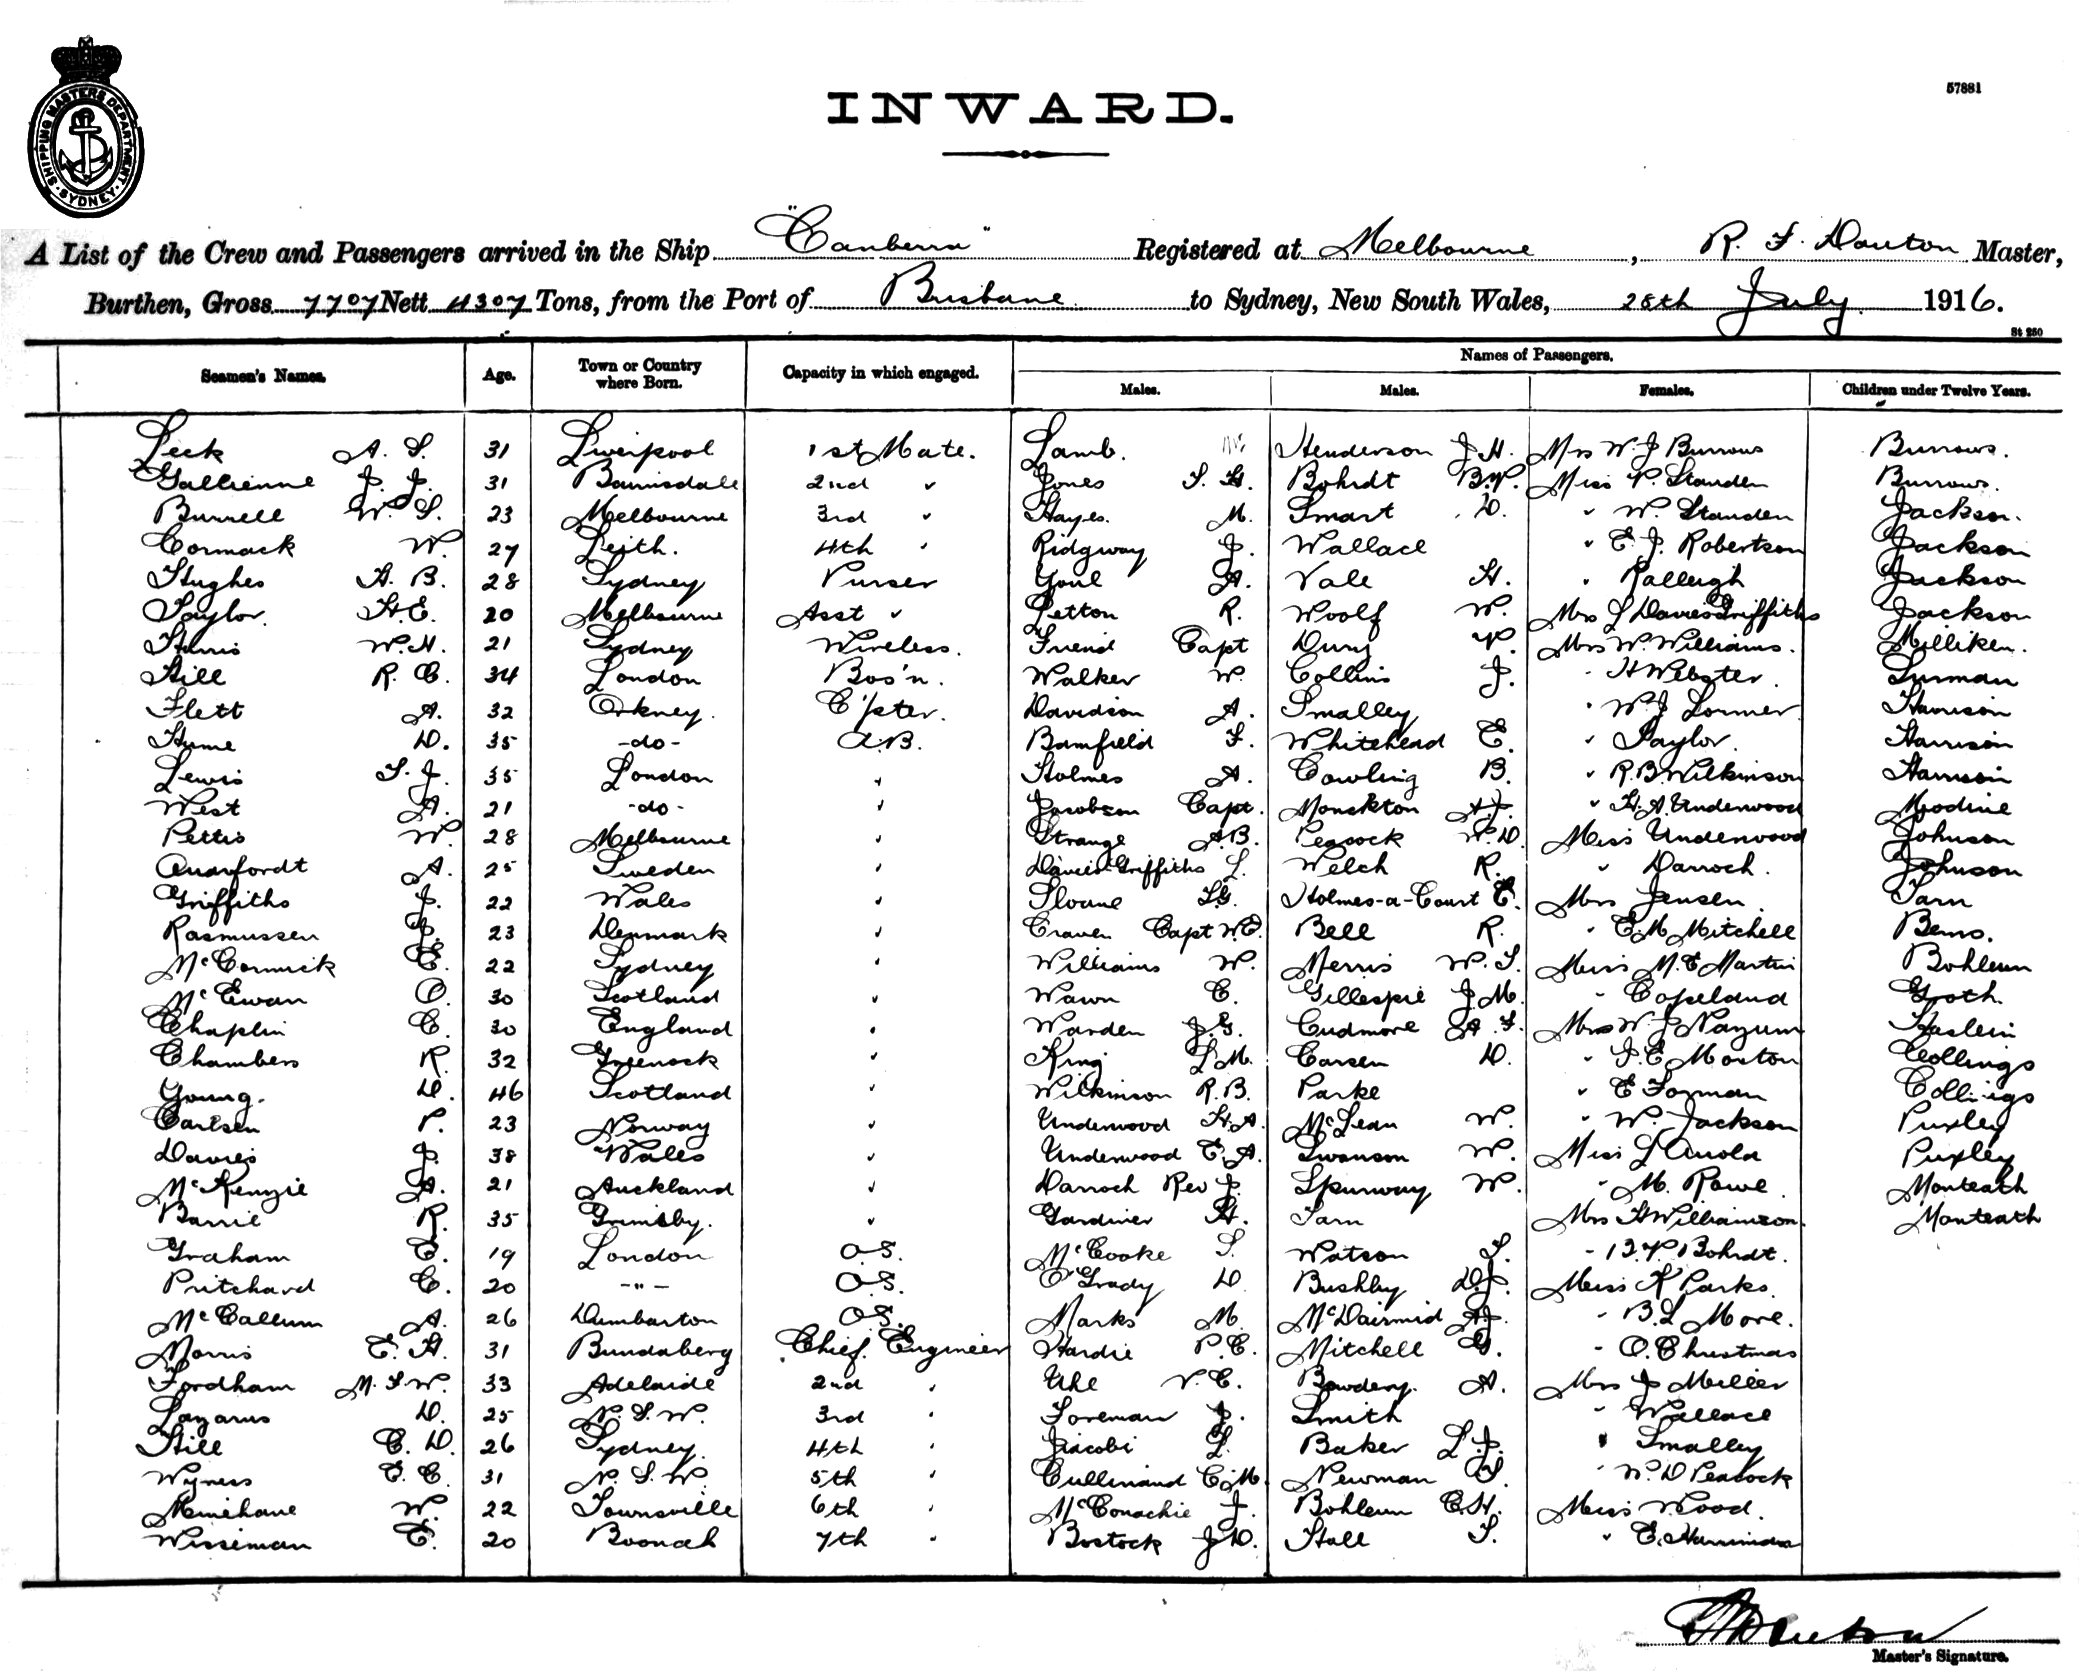 SHIPPING MASTERS DEPARTMENT · SYDNEY ·
57881
INWARD.
A List of the Crew and Passengers arrived in the Ship "Canberra" Registered at Melbourne, R. F. Master,
Burthen, Gross 7707 Nett 4307 Tons, from the Port of Brisbane to Sydney, New South Wales, 28th July 1916.
St 250
Names of Passengers.
Seamen's Names. Age. Town or Country where Born. Capacity in which engaged. Males. Males. Females. Children under Twelve Years.
Leck A. S. 31 Liverpool 1st Mate. Lamb. Henderson J H. Mrs W. J Burrows Burrows.
Gallienne J. J. 31 Bairnsdale 2nd " Jones S. H. Bohrdt B.V. Miss V. Standen Burrows.
Burrell W. S. 23 Melbourne 3rd " Hayes. M. Smart D. " W. Standen Jackson.
Cormack W. 27 Leith. 4th " Ridgway J. Wallace " E. J. Robertson Jackson
Hughes H. B. 28 Sydney Purser Youl A. Vale H. " Ralleigh Jackson
Taylor. H.E. 20 Melbourne Asst " Petton R. Woolf W. Mrs L Davies Griffiths Jackson
Harris W.H. 21 Sydney Wireless. Friend Capt V. Mrs W. Williams. Milliken.
Hill R. C. 34 London Bos'n. Walker W. Collins J. " H Webster. Surman
Flett A. 32 Orkney. C'pter. Davidson A. Smalley " W. J Lormer Harrison
Hume D. 35 -do- A.B. Bamfield F. Whitehead E. " Taylor. Harrison
Lewis S. J. 35 London " Holmes A. Cowling B. " R.B Wilkinson Harrison
West A. 21 -do- " Jacobsen Capt. Monckton A.J. " H. A. Underwood Modine
Pettis W. 28 Melbourne " Strange A.B. Peacock W.D. Miss Underwood Johnson
A. 25 Sweden " Davies-Griffiths L. Welch R. " Darroch. Johnson
Griffiths J. 22 Wales " Sloane Holmes-a-Court E. Mrs Jensen. Tarn
Rasmussen J. 23 Denmark " Craven Capt W.E. Bell R. " E. M Mitchell Bems.
McCormick E. 22 Sydney " Williams W. Merris W. S. Miss M. E Martin Bohleun
McEwan O. 30 Scotland " Wawn C. Gillespie J. M. " Copeland Groth.
Chaplin C. 30 England " Warden J G. Cudmore A. F. Mrs W. J Haslein
Chambers R. 32 Greenock " King L M. Carsen D. " J. C Morton Collings
Young. D. 46 Scotland " Wilkinson R. B. Parke " E Forman Collings
Carlsen P. 23 Norway " Underwood H.A. McLean W. " W. Jackson Puxley
Davies J. 38 Wales " Underwood E. A. Swanson W. Miss L Arnold Puxley
McKenzie A. 21 Auckland " Darroch Rev J. Spurway W. " M. Rowe Monteath
Barrie R. 35 Grimsby. " Gardiner H. Tarn Mrs H Williamson. Monteath
Graham E. 19 London O.S. McCooke S. Watson S. " B.V Bohrdt.
Pritchard C. 20 -"- O.S. O'Grady D. Bushby D.J. Miss K Parks.
McCallum A. 26 Dumbarton O.S. Marks M. McDairmid A.J. " B. L More.
Morris E. H. 31 Bundaberg Chief Engineer Hardie P. C. Mitchell G. " O. Christmas
Fordham M. S. W. 33 Adelaide 2nd " Uhe V. C. Bowdery. A. Mrs J Miller
Lazarus D. 25 N. S. W. 3rd " Foreman J. Smith " Wallace
Hill C. D. 26 Sydney. 4th " Jiacobi L. Baker L. J. " Smalley
Wyness E. C. 31 N. S. W 5th " Cullinand C. M. Newman S. " W. D Peacock
Minehane W. 22 Townsville 6th " McConachie J. Bohleun C. H. Miss Wood.
Wisseman E. 20 Boonah 7th " Bostock J D. Hall S. " E.
Master's Signature.